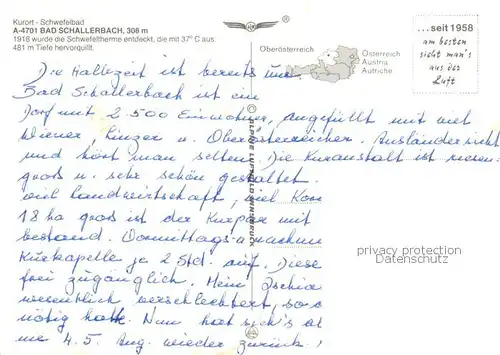 Kurort - Schwefelbad
A-4701 BAD SCHALLERBACH, 308 m
1918 wurde die Schwefeltherme entdeckt, die mit 37° C aus
481 m Tiefe hervorquillt.
Oberösterreich
Österreich
Austria
Autriche
...seit 1958
am besten
sieht man's
aus der
Luft
Die Halbzeit ist bereits
Bad Schallerbach ist ein
Dorf mit 2 500 Einwohner, angefüllt mit viel
Wiener, Linzer u. Oberösterreicher. Ausländer sieht
und hört man selten. Die Kuranstalt ist riesen-
gross u. sehr schön gestaltet.
viel Landwirtschaft, viel Korn
18 ha gross ist der Kurpark mit
bestand. Vormittags u. nachm
Kurkapelle je 2 Std. auf. Diese
frei zugänglich. Mein Ischia
wesentlich verschlechtert, so
nötig hatte. Nun hat sich's
me 4. 5. Aug. wieder zurück!
ALPINE LUFTBILD INNSBRUCK
privacy protection
Datenschutz